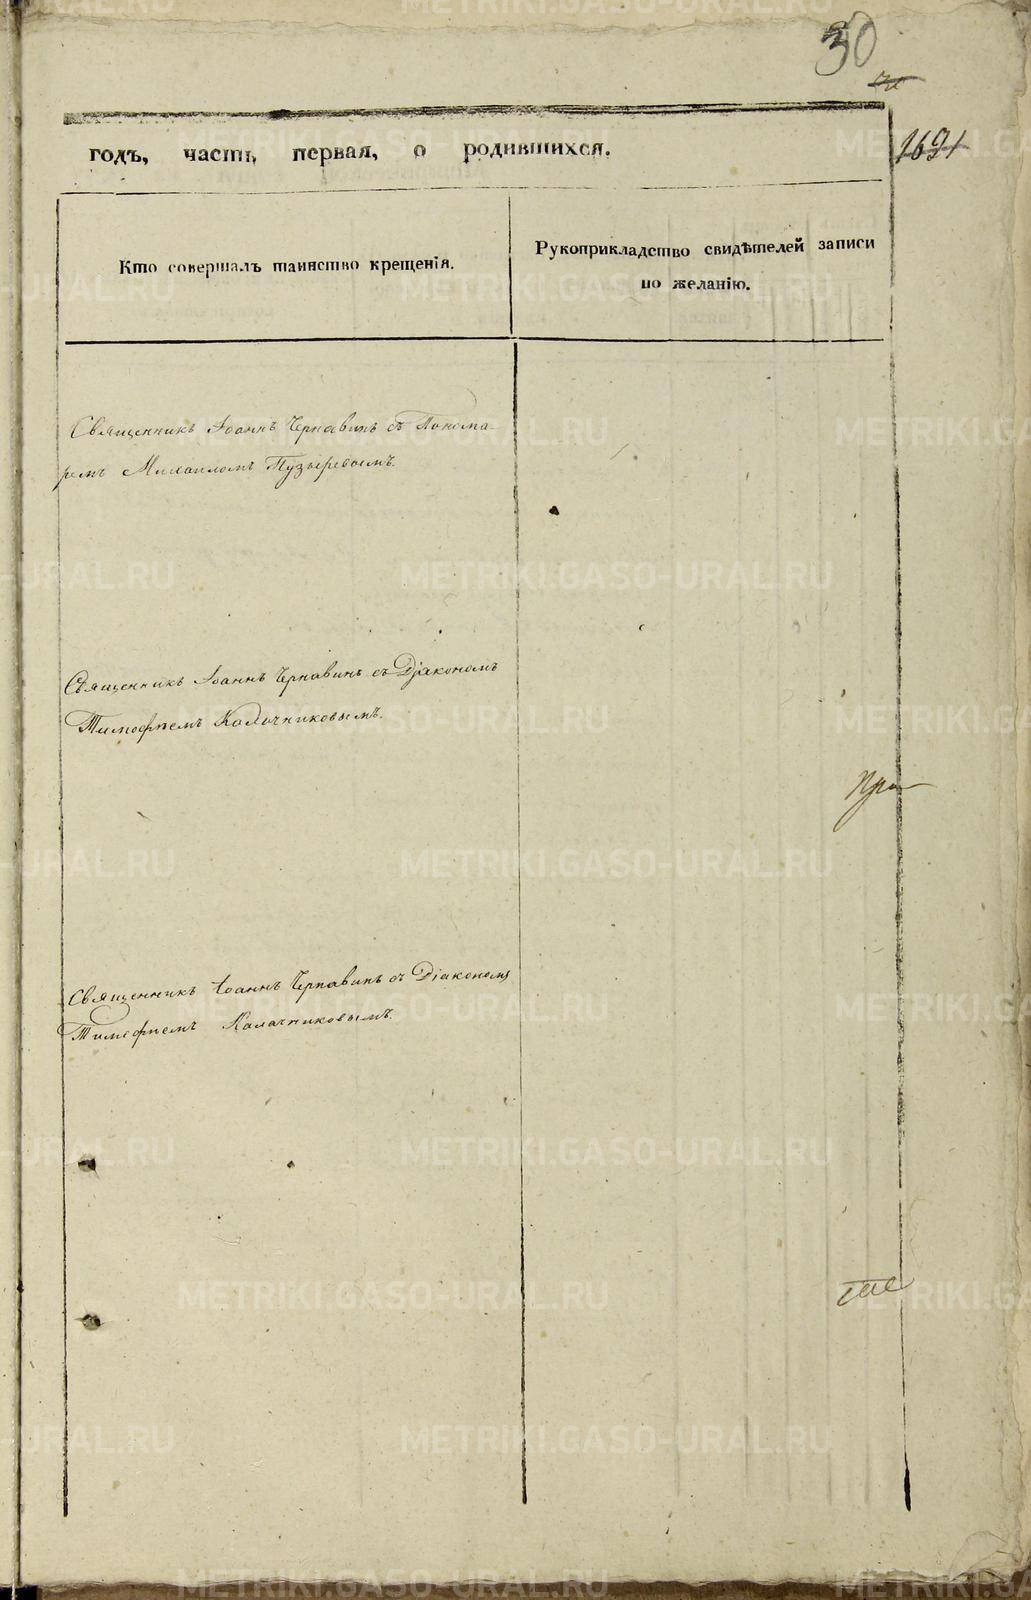 30
1691
годъ, часть первая, о родившихся.
Кто совершалъ таинство крещенія.
Рукоприкладство свидѣтелей записи
по желанію.
Священникъ Іоаннъ Чернавинъ съ Понома-
ремъ Михаиломъ Пузыревымъ.
Священникъ Іоаннъ Чернавинъ съ Діакономъ
Тимофѣемъ Калачниковымъ.
При
Священникъ Іоаннъ Чернавинъ съ Діакономъ
Тимофѣемъ Калачниковымъ.
METRIKI.GASO-URAL.RU